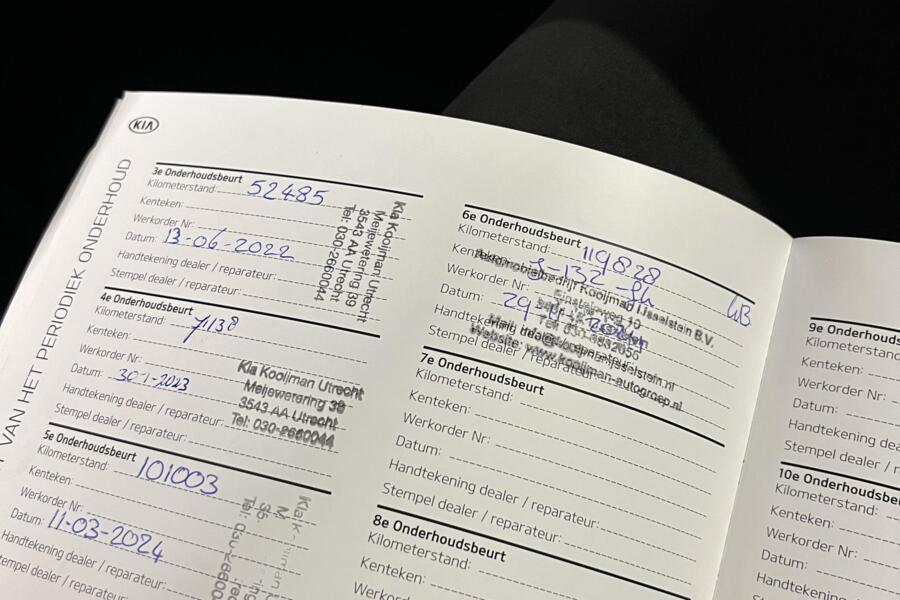 KIA
VAN HET PERIODIEK ONDERHOUD
3e Onderhoudsbeurt
Kilometerstand: 52485
Kenteken:
Werkorder Nr:
Datum: 13-06-2022
Handtekening dealer / reparateur:
Stempel dealer / reparateur:
Kia Kooijman Utrecht
Meijewetering 39
3543 AA Utrecht
Tel: 030-2660044
4e Onderhoudsbeurt
Kilometerstand: 71138
Kenteken:
Werkorder Nr:
Datum: 30-1-2023
Handtekening dealer / reparateur:
Stempel dealer / reparateur:
Kia Kooijman Utrecht
Meijewetering 39
3543 AA Utrecht
Tel: 030-2660044
5e Onderhoudsbeurt
Kilometerstand: 101003
Kenteken:
Werkorder Nr:
Datum: 11-03-2024
Handtekening dealer / reparateur:
Stempel dealer / reparateur:
6e Onderhoudsbeurt
Kilometerstand: 119828
Kenteken:
Werkorder Nr:
Datum:
Handtekening dealer / reparateur:
Stempel dealer / reparateur:
Automobielbedrijf Kooijman IJsselstein B.V.
Einsteinweg 10
Website: www.kooijman-autogroep.nl
7e Onderhoudsbeurt
Kilometerstand:
Kenteken:
Werkorder Nr:
Datum:
Handtekening dealer / reparateur:
Stempel dealer / reparateur:
8e Onderhoudsbeurt
Kilometerstand:
Kenteken:
9e Onderhoudsbe
Kilometerstand
Kenteken:
Werkorder Nr:
Datum:
Handtekening dea
Stempel dealer /
10e Onderhoudsbe
Kilometerstand:
Kenteken:
Werkorder Nr:
Datum:
Handtekening